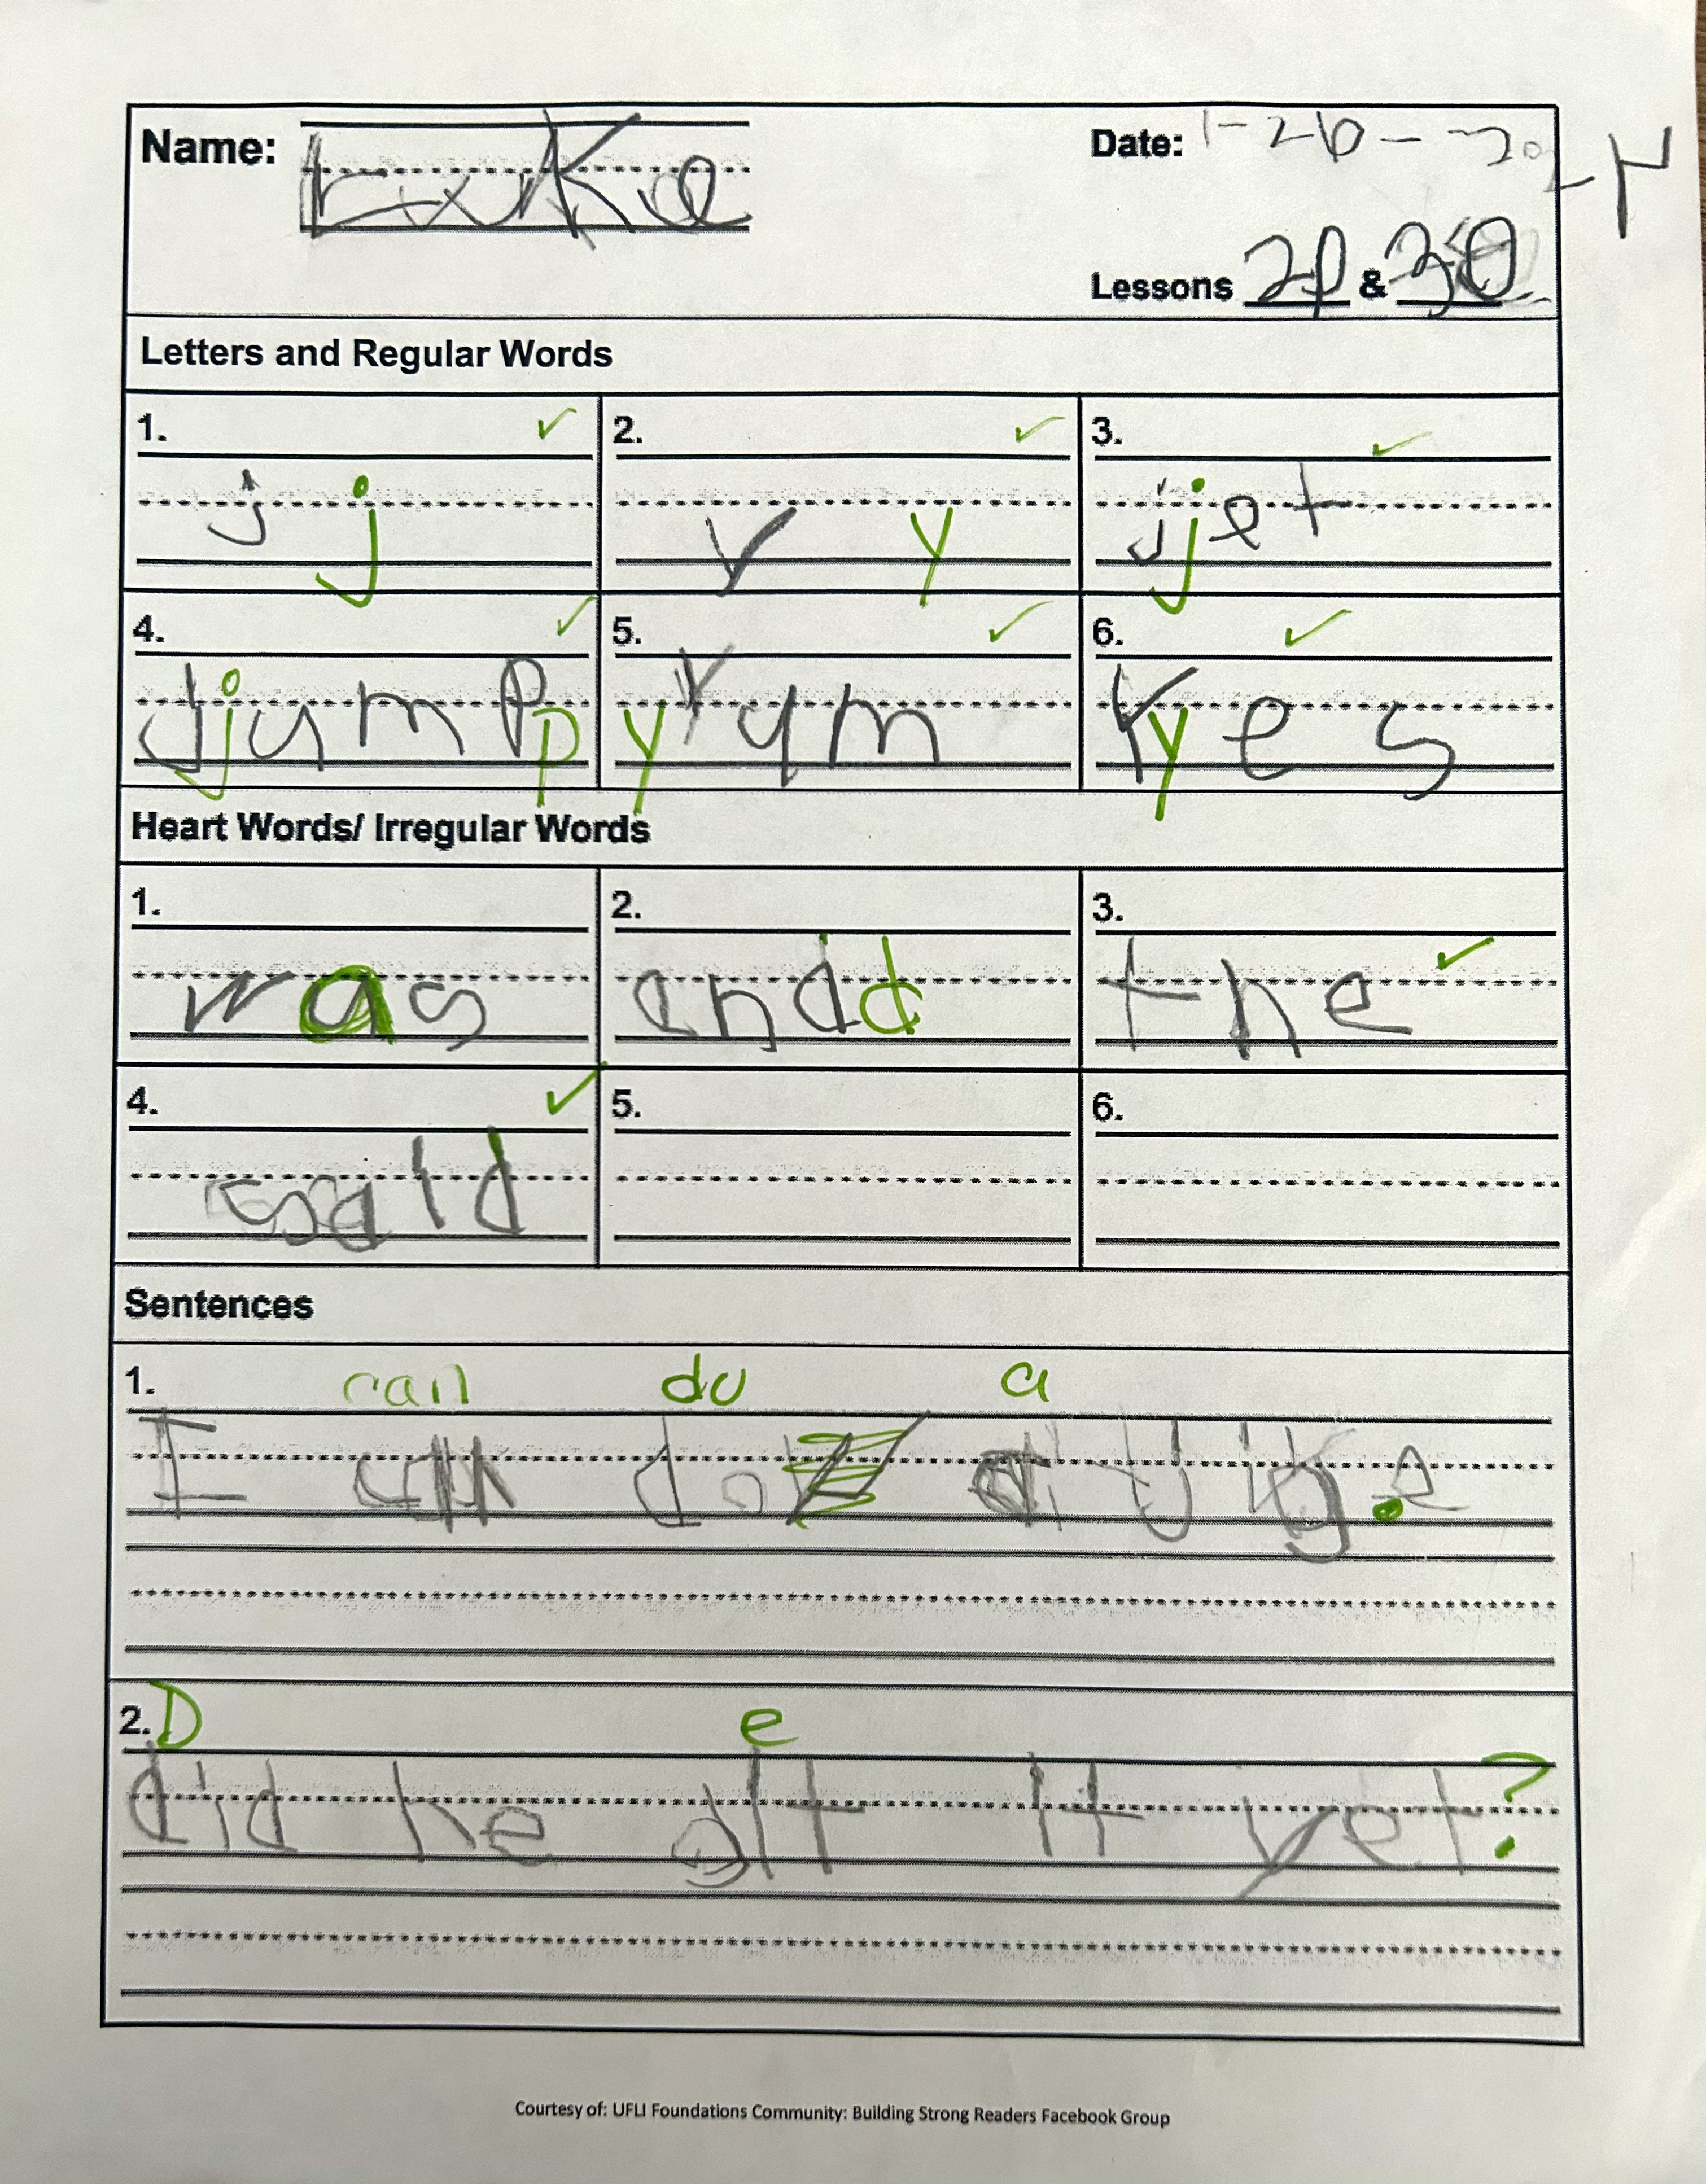 Name: Luke
Date: 1-26-
Lessons 29 & 30
Letters and Regular Words
1. ✓ 2. ✓ 3. ✓
j j y y jjet
4. ✓ 5. ✓ 6. ✓
jjumpp yyum yyes
Heart Words/ Irregular Words
1. 2. 3. ✓
was andd the
4. ✓ 5. 6.
said
Sentences
1. can do a
I can do a jig.
2. D e
did he git it yet?
Courtesy of: UFLI Foundations Community: Building Strong Readers Facebook Group